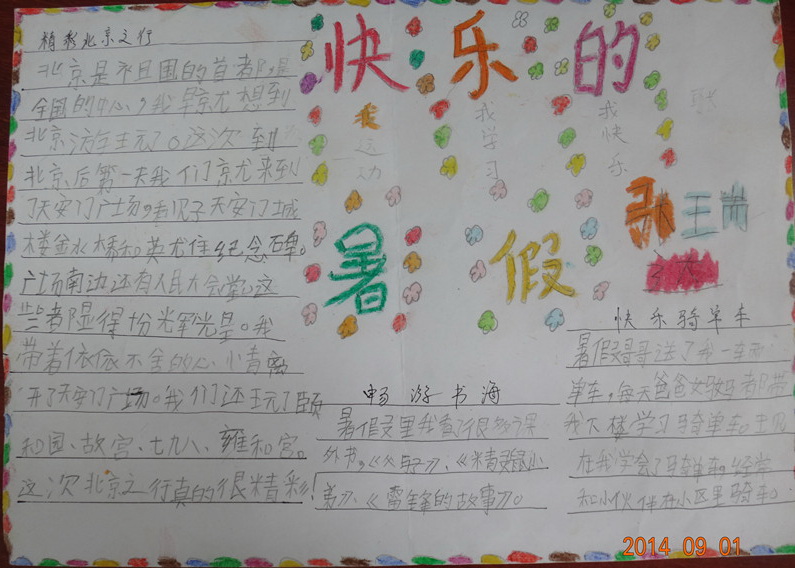 快乐的
暑假
我运动
我学习
我快乐
精彩北京之行
北京是祖国的首都,是
全国的中心,我早就想到
北京游玩了。这次到
北京后第一天我们京尤来到
了天安门广场,看见了天安门城
楼金水桥和英尤住纪念碑。
广场南边还有人民大会堂。这
些者阝显得十分光军光呈。我
带着依依不舍的心情离
开了天安门广场。我们还玩了颐
和园、故宫、七九八、雍和宫。
这次北京之行真的很精彩!
畅游书海
暑假里我看了很多课
外书,《父与子》、《精灵鼠小
弟》、《雷锋的故事》。
快乐骑单车
暑假哥哥送了我一车雨
单车,每天爸爸妈妈都带
我下楼学习骑单车。
在我学会了骑单车,经常
和小伙伴在小区里骑车。
2014 09 01